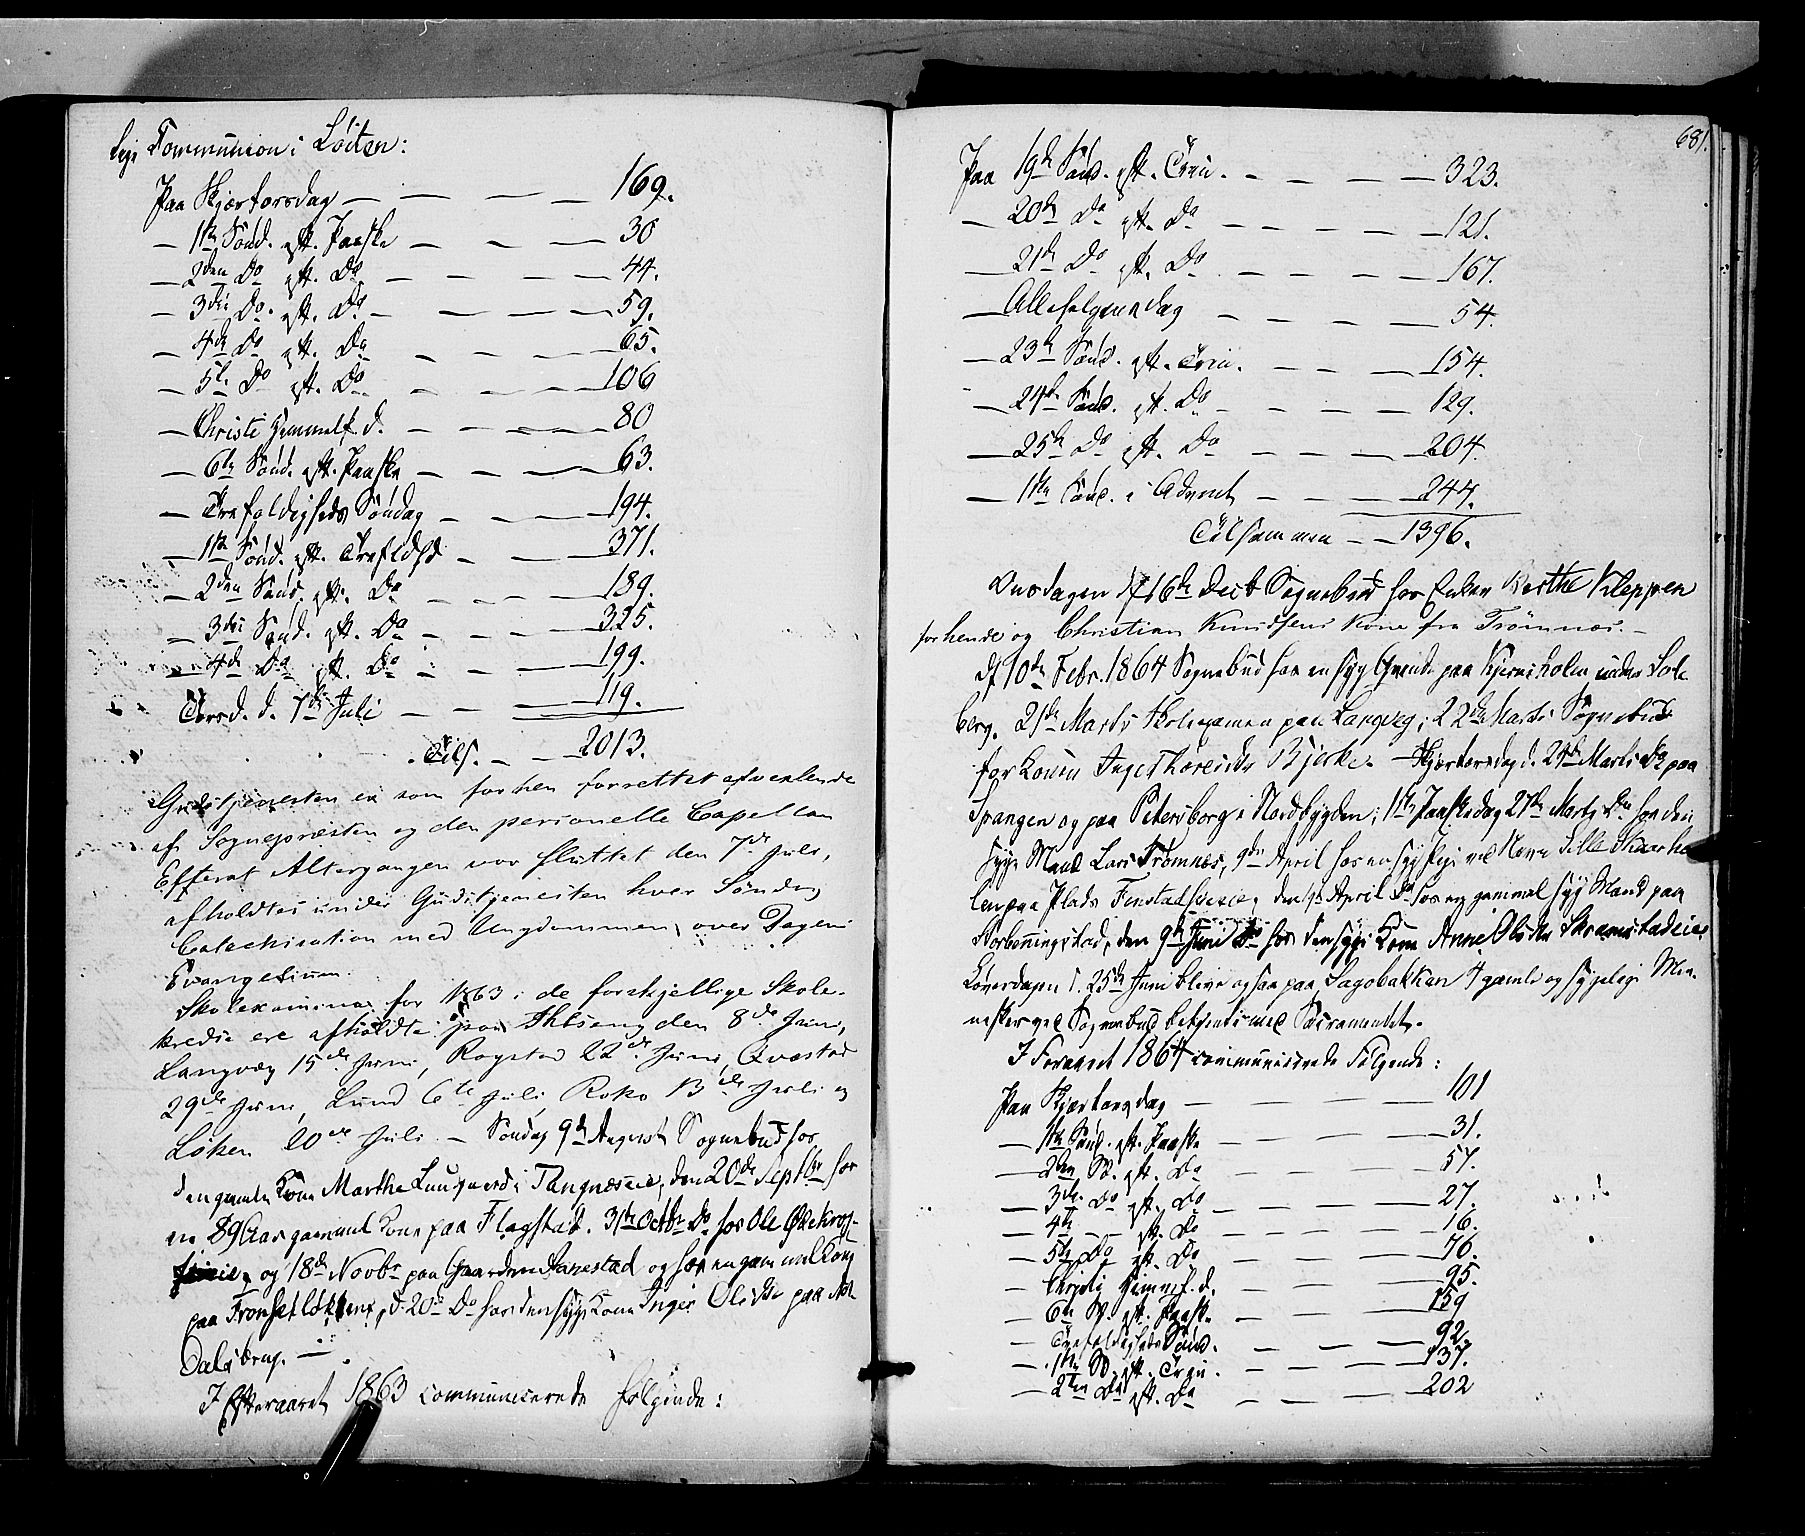 Communion i Löiten:
Paa Skjærtorsdag — — — 169.
— 1ste Sönd. eft. Paaske — — — 30
— 2den Do eft. Do — — — 44.
— 3die Do. eft. Do — — — 59.
— 4de Do eft. Do — — — 65.
— 5te Do eft. Do — — — 106
— Christi Himmelf. d. — — — 80
— 6te Sönd. eft. Paaske — — — 63.
— Trefoldigheds Söndag — — — 194.
— 1ste Sönd. eft. Trefldhd — — — 371.
— 2den Sönd. eft. Do — — — 189.
— 3die Sönd. eft. Do — — — 325.
— 4de Do eft. Do — — — 199.
Torsd. d. 7de Juli — — — 119.
Tils. — — 2013.
Gudstjenesten er som forhen forrettet afvexlende
af Sognepræsten og den personelle Capellan
Efterat Altergangen var sluttet den 7de Juli,
afholdtes under Gudstjenesten hver Söndag
Catechisation med Ungdommen over Dagens
Evangelium.
Skolexamina for 1863 i de forskjellige Skole-
kredse ere afholdte paa den 8de Juni,
Langvæg 15de Juni, Rogstad 22de Juni, Qvæstad
29de Juni, Lund 6te Juli, Roko 13de Juli og
Löken 20de Juli. — Söndag 9de August Sognebud hos
den gamle Kone Marthe i Tangnæseie, den 20de Septbr hos
en 89 Aar gammel Kone paa Flagstad. 31te Octbr Do hos Ole
og 18de Novbr paa Gaarden og hos en gammel Kone
paa d. 20de Do hos den syge Kone Inger Olsdtr paa
Dalsbrug. —
I Efteraaret 1863 communicerede fölgende:
681.
Paa 19de Sönd. eft. Trin. — — — 323.
— 20de Do eft. Do — — — 121.
— 21de Do eft. Do — — — 167.
— Allehelgensdag — — — 54.
— 23de Sönd. eft. Trin. — — — 154.
— 24de Sönd. eft. Do — — — 129.
— 25de Do eft. Do — — — 204.
— 1ste Sönd. i Advent — — — 244.
Tilsammen — — 1396.
Onsdagen d. 16de Decb Sognebud hos Enken Berthe Kleppen
for hende og Christian Knudsens Kone fra Trömnæs. —
D. 10de Febr. 1864 Sognebud hos en syg Qvinde paa under Sol-
berg. 21de Marts Skolexamen paa Langvæg; 22de Marts Sognebud
for Konen Inger Bjerke. — Skjærtorsdag d. 24de Marts Do paa
Spangen og paa Petersborg i Nordbygden; 1ste Paaskedag 27de Marts Do hos den
syge Mand Lars Trömnæs, 9de April hos en
paa Plads Finstad den April Do hos en gammel syg Mand paa
den 9de Juni Do hos den syge Kone Anne Olsdtr
Löverdagen d. 25de Juni bleve ogsaa paa Sagobakken 4 gamle og sygelige Men-
nesker ved Sognebud betjente med Sacramentet.
I Foraaret 1864 communicerede Fölgende:
Paa Skjærtorsdag — — — 101
— 1ste Sönd. eft. Paaske — — — 31.
— 2den S. eft. Do — — — 57.
— 3die Do eft. Do — — — 27.
— 4de — eft. Do — — — 16.
— 5te Do eft. Do — — — 76.
— Christi Himmelf. d. — — — 95.
— 6te S. eft. Paaske — — — 159
— Trefoldigheds Sönd. — — — 92.
— 1ste S. eft. Trin. — — — 137.
— 2den Do eft. Do — — — 202